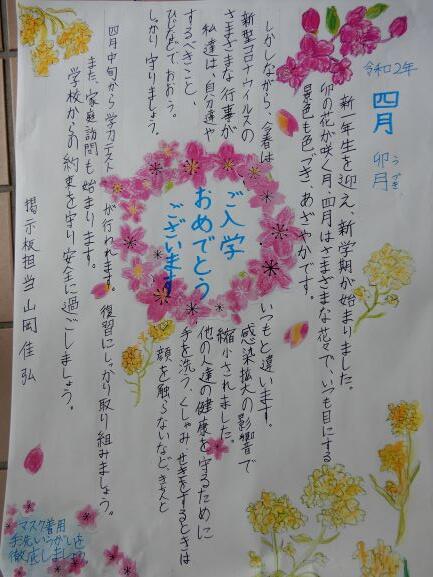 令和2年
四月
卯月
うづき
新一年生を迎え、新学期が始まりました。
卯の花が咲く月、四月はさまざまな花々で、いつも目にする
景色も色づき、あざやかです。
しかしながら、今春は
いつもと違います。
新型コロナウイルスの
感染拡大の影響で
さまざまな行事が
縮小されました。
私達は、自分達や
他の人達の健康を守るために
するべきこと、
手を洗う、くしゃみ せきをするときは
ひじなどで、おおう。
顔を触らないなど、きちんと
しっかり守りましょう。
四月中旬から学力テストが行われます。復習にしっかり取り組みましょう。
また、家庭訪問も始まります。
学校からの約束を守り安全に過ごしましょう。
掲示板担当 山岡 佳弘
ご入学
おめでとう
ございます
マスク着用
手洗いうがいを
徹底しましょう。